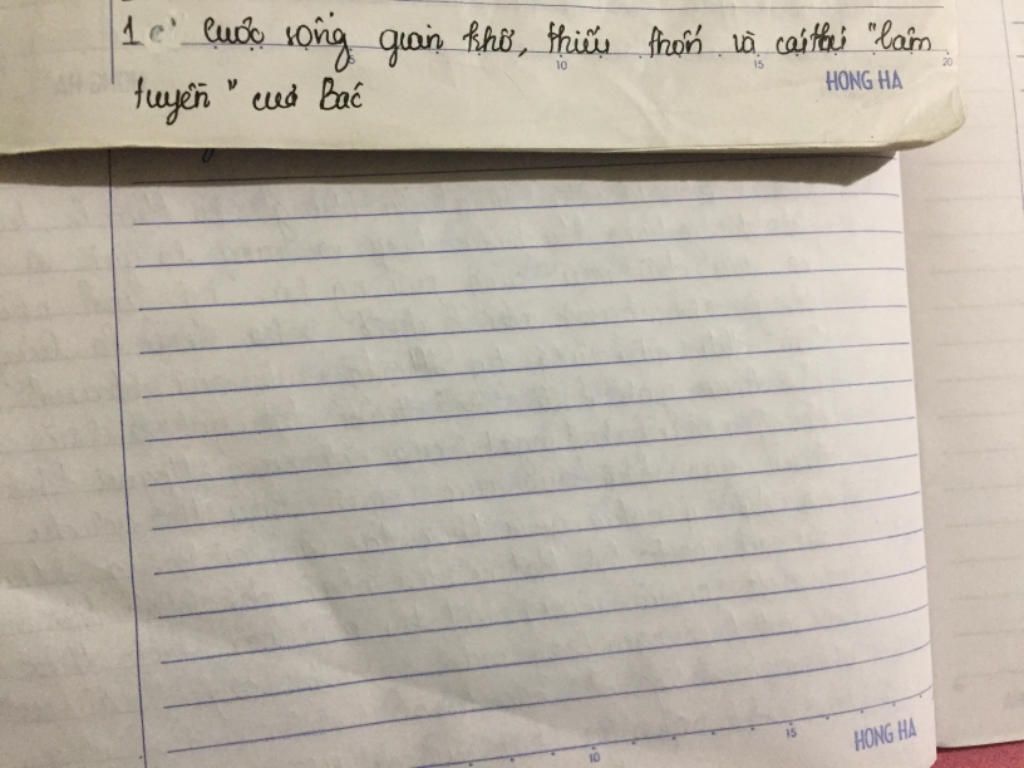 1 cuộc sống gian khổ, thiếu thốn và cái thú "lâm
10 15 20
HONG HA
tuyền" của Bác
15 HONG HA
10